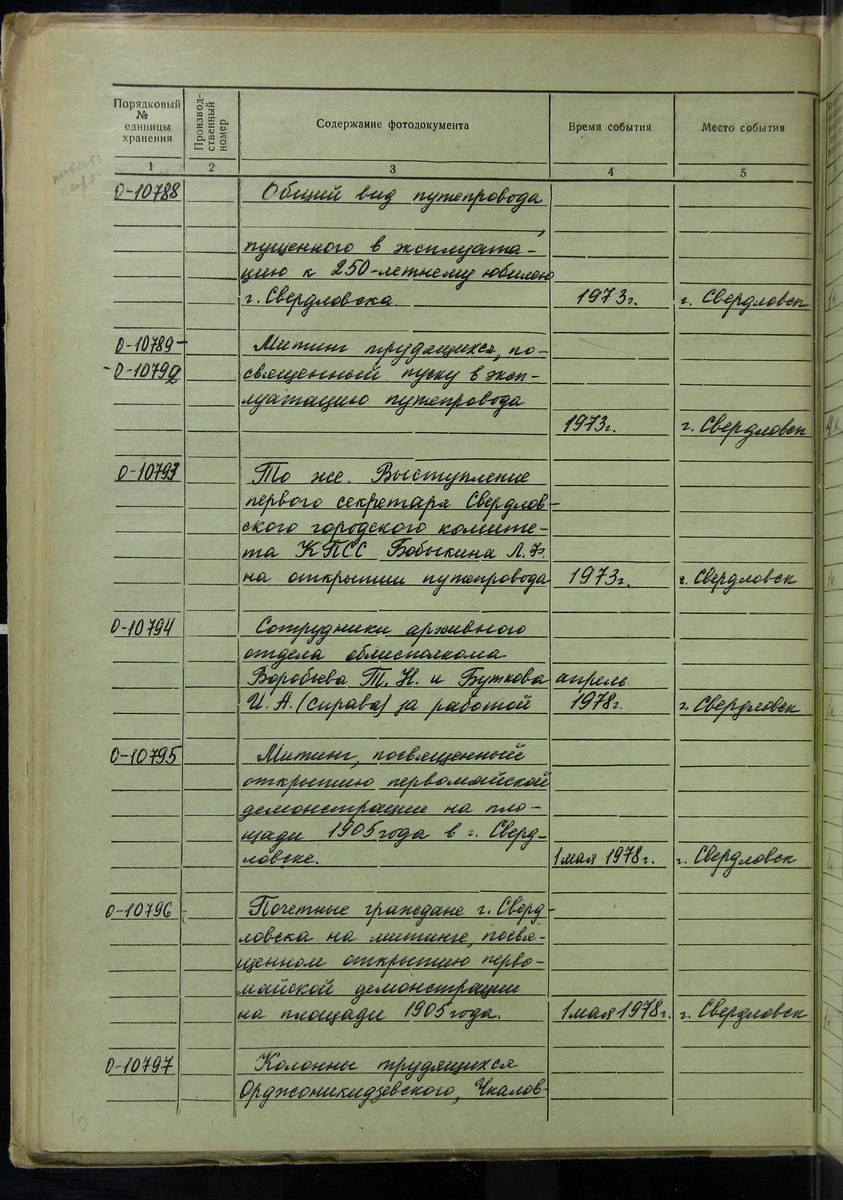 Порядковый № единицы хранения
Производ-ственный номер
Содержание фотодокумента
Время события
Место события
1 2 3 4 5
0-10788 Общий вид путепровода
,
пущенного в эксплуата-
цию к 250-летнему юбилею
г. Свердловска. 1973г. г. Свердловск
0-10789- Митинг трудящихся, по-
-0-10792 священный пуску в эксп-
луатацию путепровода
1973г. г. Свердловск
0-10793 То же. Выступление
первого секретаря Свердлов-
ского городского комите-
та КПСС Бобыкина Л.Ф.
на открытии путепровода 1973г. г. Свердловск
0-10794 Сотрудники архивного
отдела облисполкома
Воробьева Т.Н. и Буткова апрель
И.А. (справа) за работой 1978г. г. Свердловск
0-10795 Митинг, посвященный
открытию первомайской
демонстрации на пло-
щади 1905 года в г. Сверд-
ловске. 1 мая 1978г. г. Свердловск
0-10796 Почетные граждане г. Сверд-
ловска на митинге, посвя-
щенном открытию перво-
майской демонстрации
на площади 1905 года. 1 мая 1978г. г. Свердловск
0-10797 Колонны трудящихся
Орджоникидзевского, Чкалов-
10